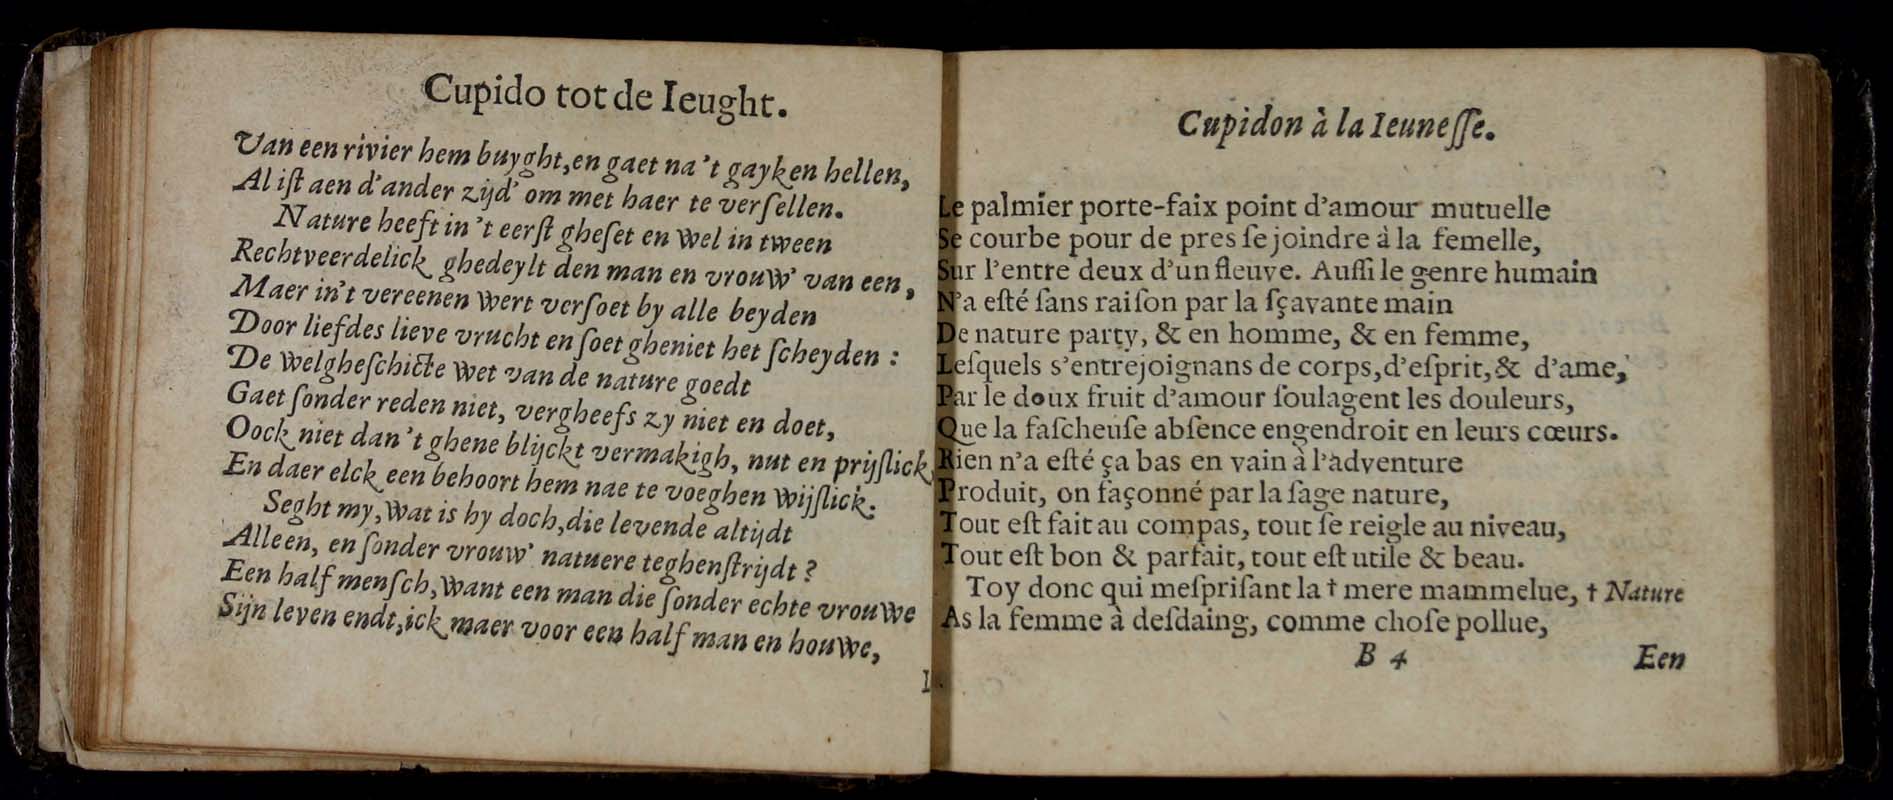 Cupido tot de Ieught.
Van een rivier hem buyght, en gaet na't gayken hellen,
Al iſt aen d'ander zijd' om met haer te verſellen.
Nature heeft in't eerſt gheſet en wel in tween
Rechtveerdelick ghedeylt den man en vrouw' van een,
Maer in't vereenen wert verſoet by alle beyden
Door liefdes lieve vrucht en ſoet gheniet het ſcheyden :
De welgheſchickte wet van de nature goedt
Gaet ſonder reden niet, vergheefs zy niet en doet,
Oock niet dan't ghene blijckt vermakigh, nut en prijſlick,
En daer elck een behoort hem nae te voeghen wijſlick.
Seght my, wat is hy doch, die levende altijdt
Alleen, en ſonder vrouw' natuere teghenſtrijdt ?
Een half menſch, want een man die ſonder echte vrouwe
Sijn leven endt, ick maer voor een half man en houwe,
I
Cupidon à la Ieuneſſe.
Le palmier porte-faix point d'amour mutuelle
Se courbe pour de pres ſe joindre à la femelle,
Sur l'entre deux d'un fleuve. Auſſi le genre humain
N'a eſté ſans raiſon par la ſçavante main
De nature party, & en homme, & en femme,
Leſquels s'entrejoignans de corps, d'eſprit, & d'ame,
Par le doux fruit d'amour ſoulagent les douleurs,
Que la faſcheuſe abſence engendroit en leurs cœurs.
Rien n'a eſté ça bas en vain à l'adventure
Produit, on façonné par la ſage nature,
Tout eſt fait au compas, tout ſe reigle au niveau,
Tout eſt bon & parfait, tout eſt utile & beau.
Toy donc qui meſpriſant la † mere mammelue, † Nature
As la femme à deſdaing, comme choſe pollue,
B 4 Een